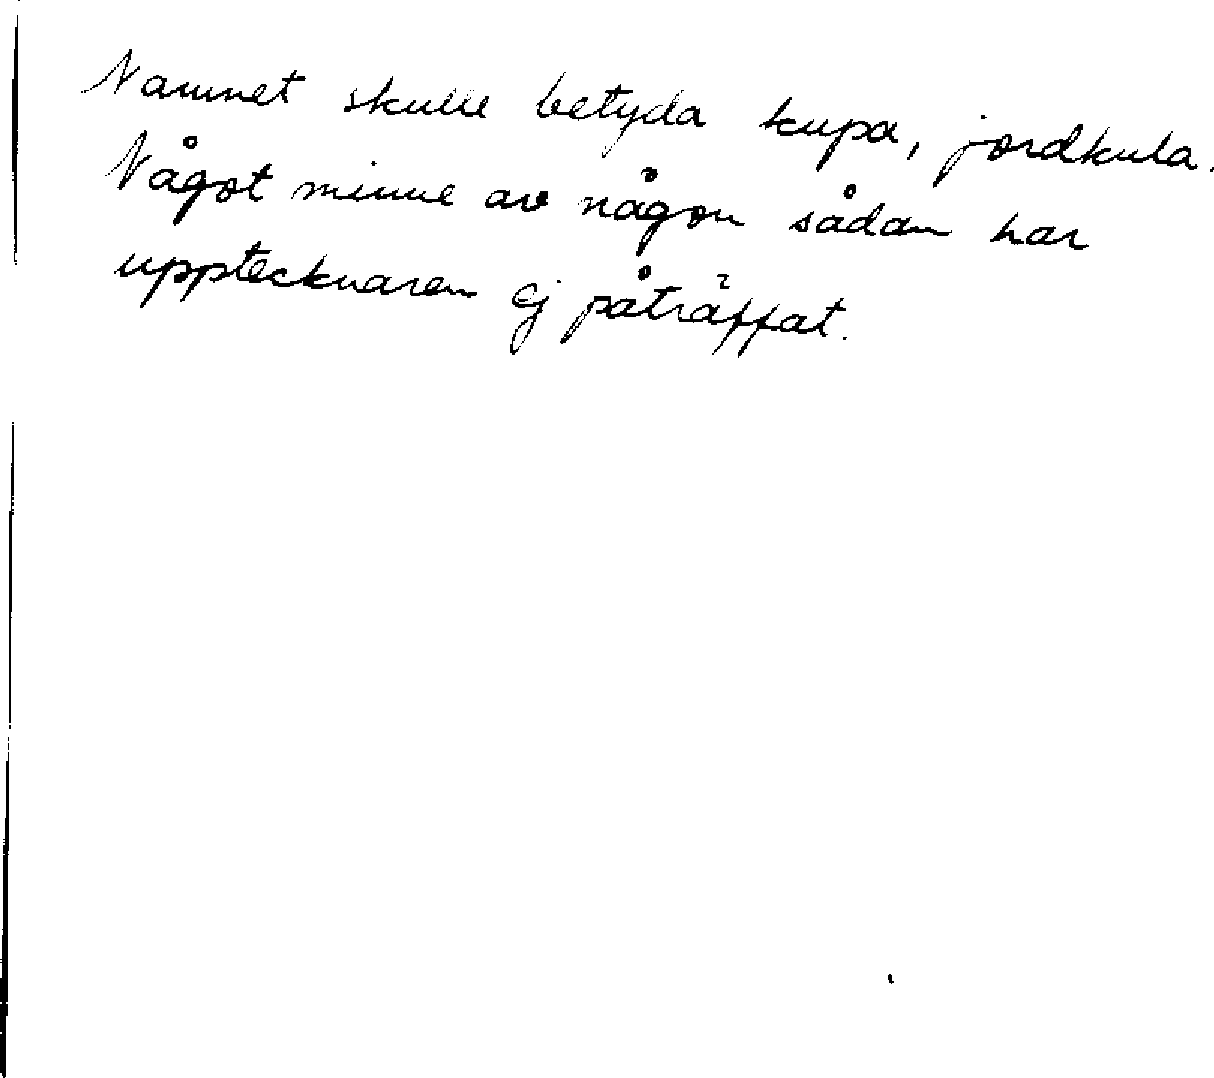 Namnet skulle betyda kupa, jordkula.
Något minne av någon sådan har
upptecknaren ej påträffat.